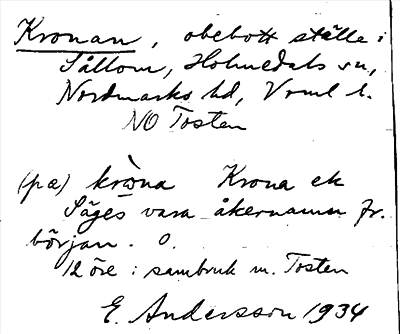 Kronan, obebott ställe i
Sållom, Holmedals sn,
Nordmarks hd, Vrml l.
NO Tosten
(pæ) kròna Krona ek
Säges vara åkernamn fr.
början. o.
12 öre i sambruk m. Tosten
E. Andersson 1934